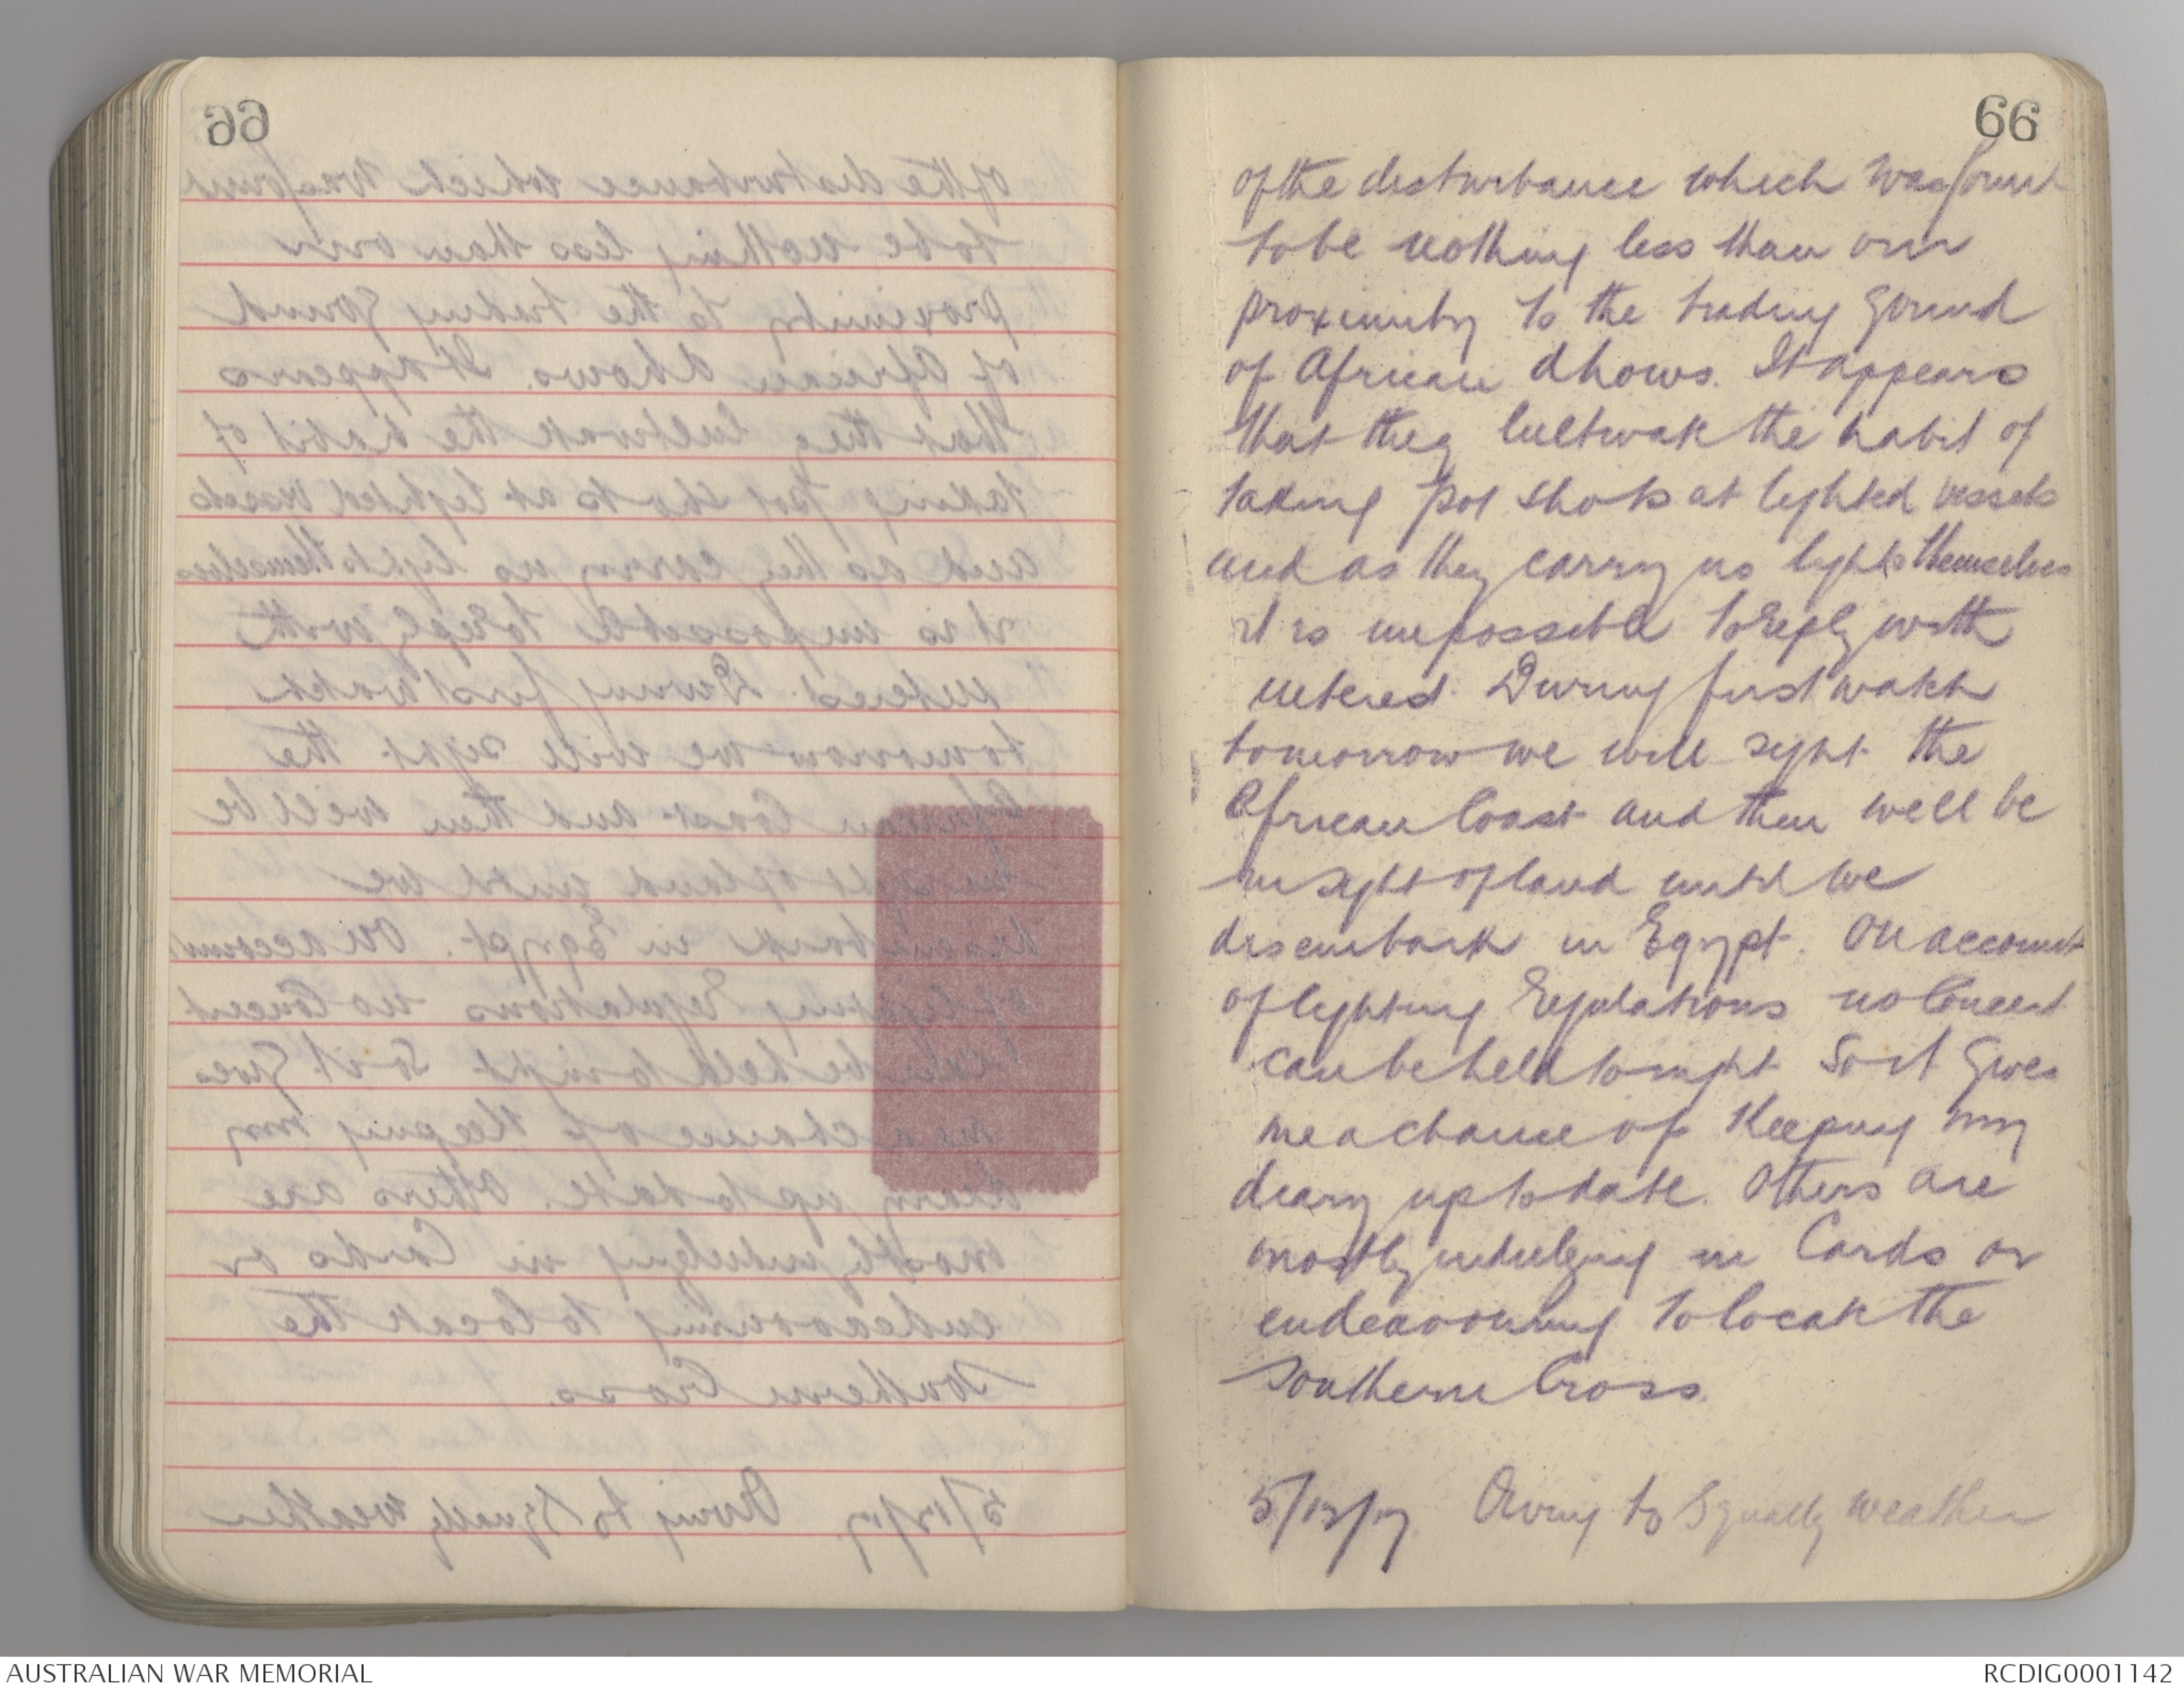 66
of the disturbance which was found
to be nothing less than our
proximity to the trading ground
of African dhows. It appears
that they cultivate the habit of
taking pot shots at lighted vessels
and as they carry no lights themselves
it is impossible to reply with
interest. During first watch
tomorrow we will sight the
African Coast and then well be
in sight of land until we
disembark in Egypt. On account
of lighting regulations no Concert
can be held tonight So it gives
me a chance of keeping my
diary up to date. Others are
mostly indulging in Cards or
endeavouring to locate the
Southern Cross.
5/12/17. Owing to Squally weather
AUSTRALIAN WAR MEMORIAL
RCDIG0001142